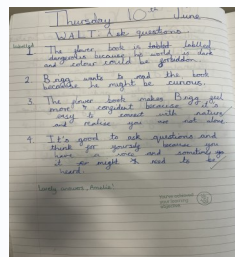 Thursday 10th June
WALT: Ask questions.
1. The flower book is labelled
dangerous because his world is dark
and colour could be forbidden.
2. wants to read the book
because he might be curious.
3. The flower book makes feel
more confident because it's
easy to connect with nature
and realise you are not alone.
4. It's good to ask questions and
think for yourself because you
have a voice and sometimes you
might need to be
heard.
Lovely answers, Amelia!